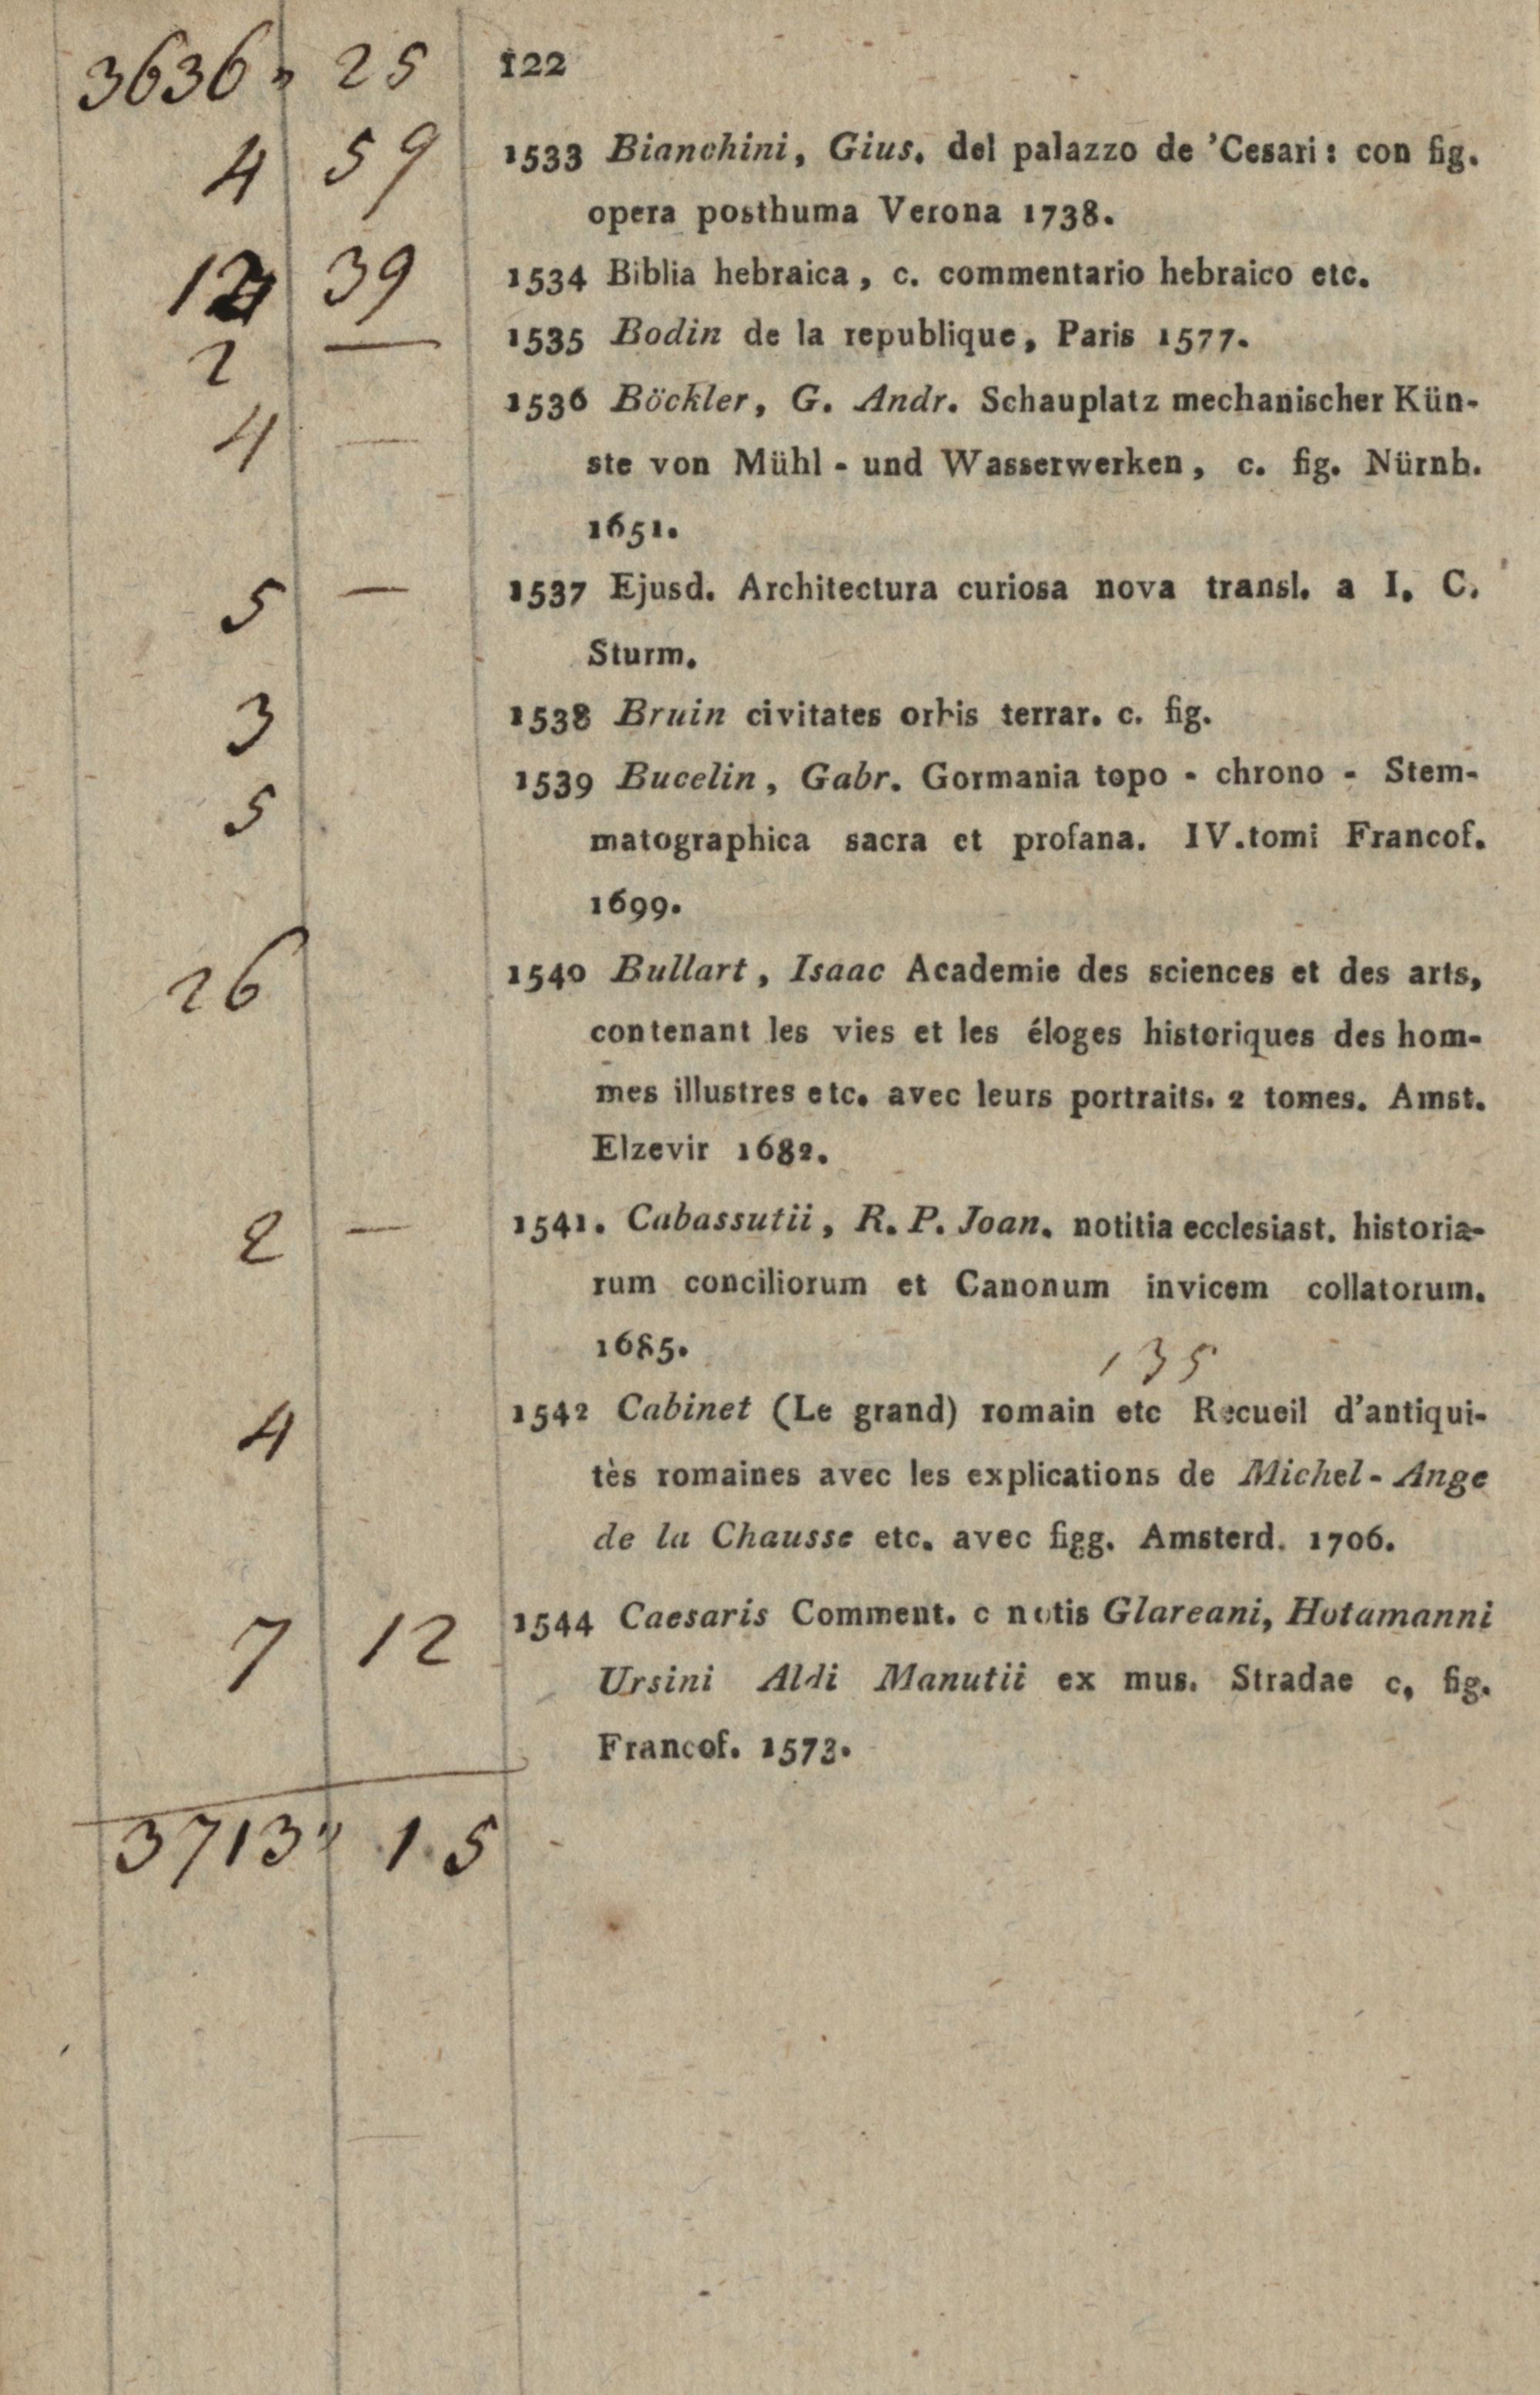 3636 „ 25 122
4 59 1533 Bianchini, Gius. del palazzo de 'Cesari: con fig.
opera posthuma Verona 1738.
39 1534 Biblia hebraica, c. commentario hebraico etc.
2 — 1535 Bodin de la republique, Paris 1577.
4 — 1536 Böckler, G. Andr. Schauplatz mechanischer Kün-
ste von Mühl - und Wasserwerken, c. fig. Nürnb.
1651.
5 — 1537 Ejusd. Architectura curiosa nova transl. a I. C.
Sturm.
3 1538 Bruin civitates orbis terrar. c. fig.
5 1539 Bucelin, Gabr. Gormania topo - chrono - Stem-
matographica sacra et profana. IV.tomi Francof.
1699.
26 1540 Bullart, Isaac Academie des sciences et des arts,
contenant les vies et les éloges historiques des hom-
mes illustres etc. avec leurs portraits. 2 tomes. Amst.
Elzevir 1682.
2 — 1541. Cabassutii, R. P. Joan. notitia ecclesiast. historia-
rum conciliorum et Canonum invicem collatorum.
1685.
135
4 1542 Cabinet (Le grand) romain etc Recueil d'antiqui-
tès romaines avec les explications de Michel - Ange
de la Chausse etc. avec figg. Amsterd. 1706.
7 12 1544 Caesaris Comment. c notis Glareani, Hotamanni
Ursini Aldi Manutii ex mus. Stradae c. fig.
Francof. 1573.
3713 „ 15